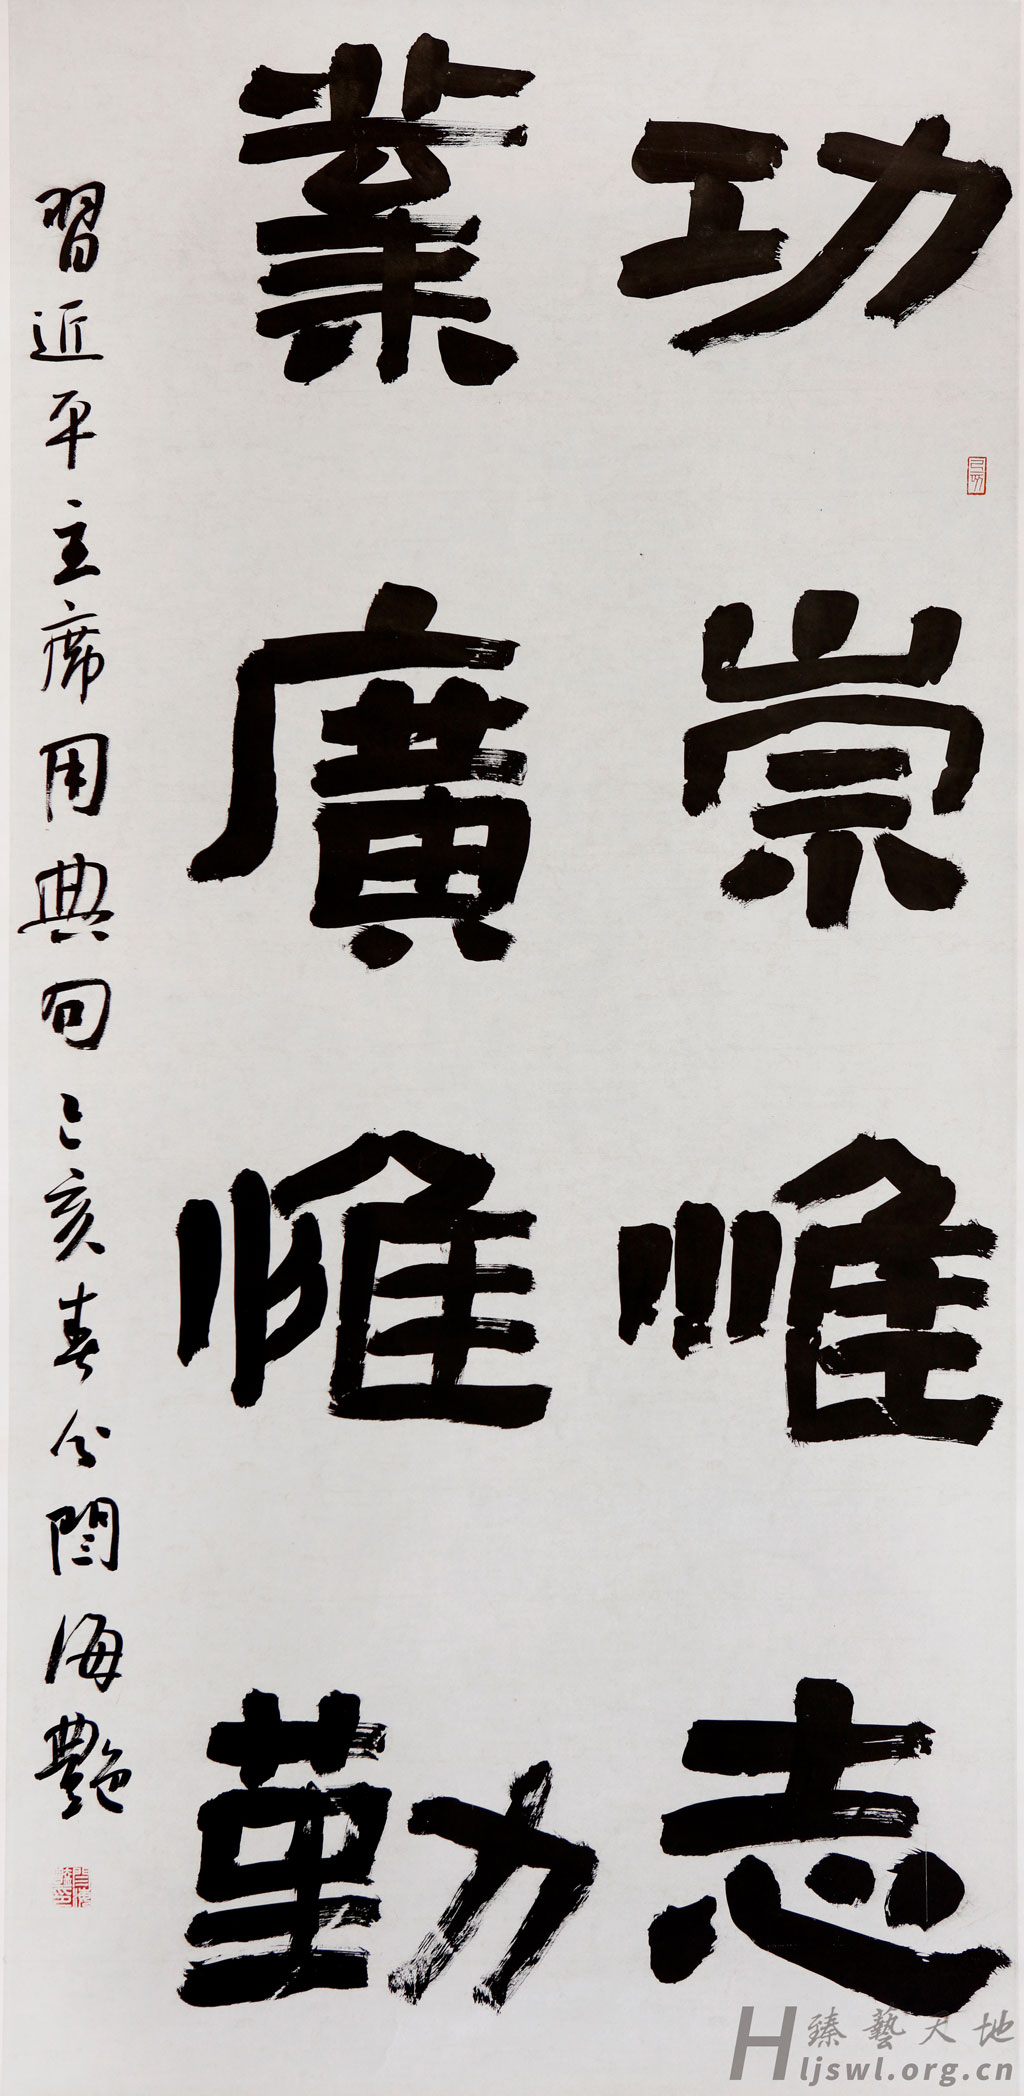 功崇惟志
業廣惟勤
習近平主席用典句己亥春分閆海艷
臻藝天地
Hljswl.org.cn